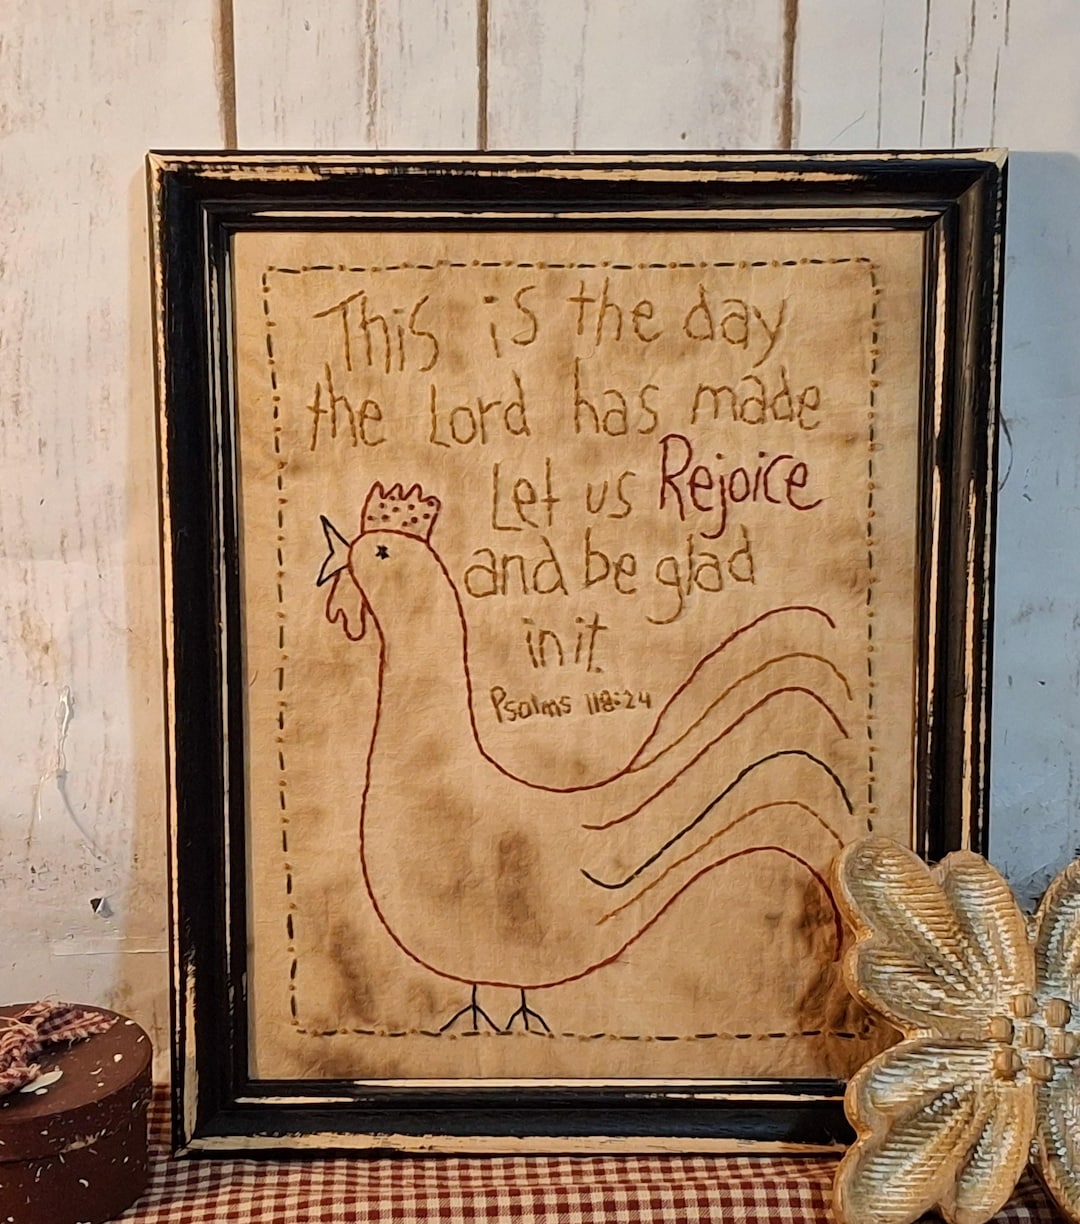 This is the day
the Lord has made
Let us Rejoice
and be glad
in it.
Psalms 118:24